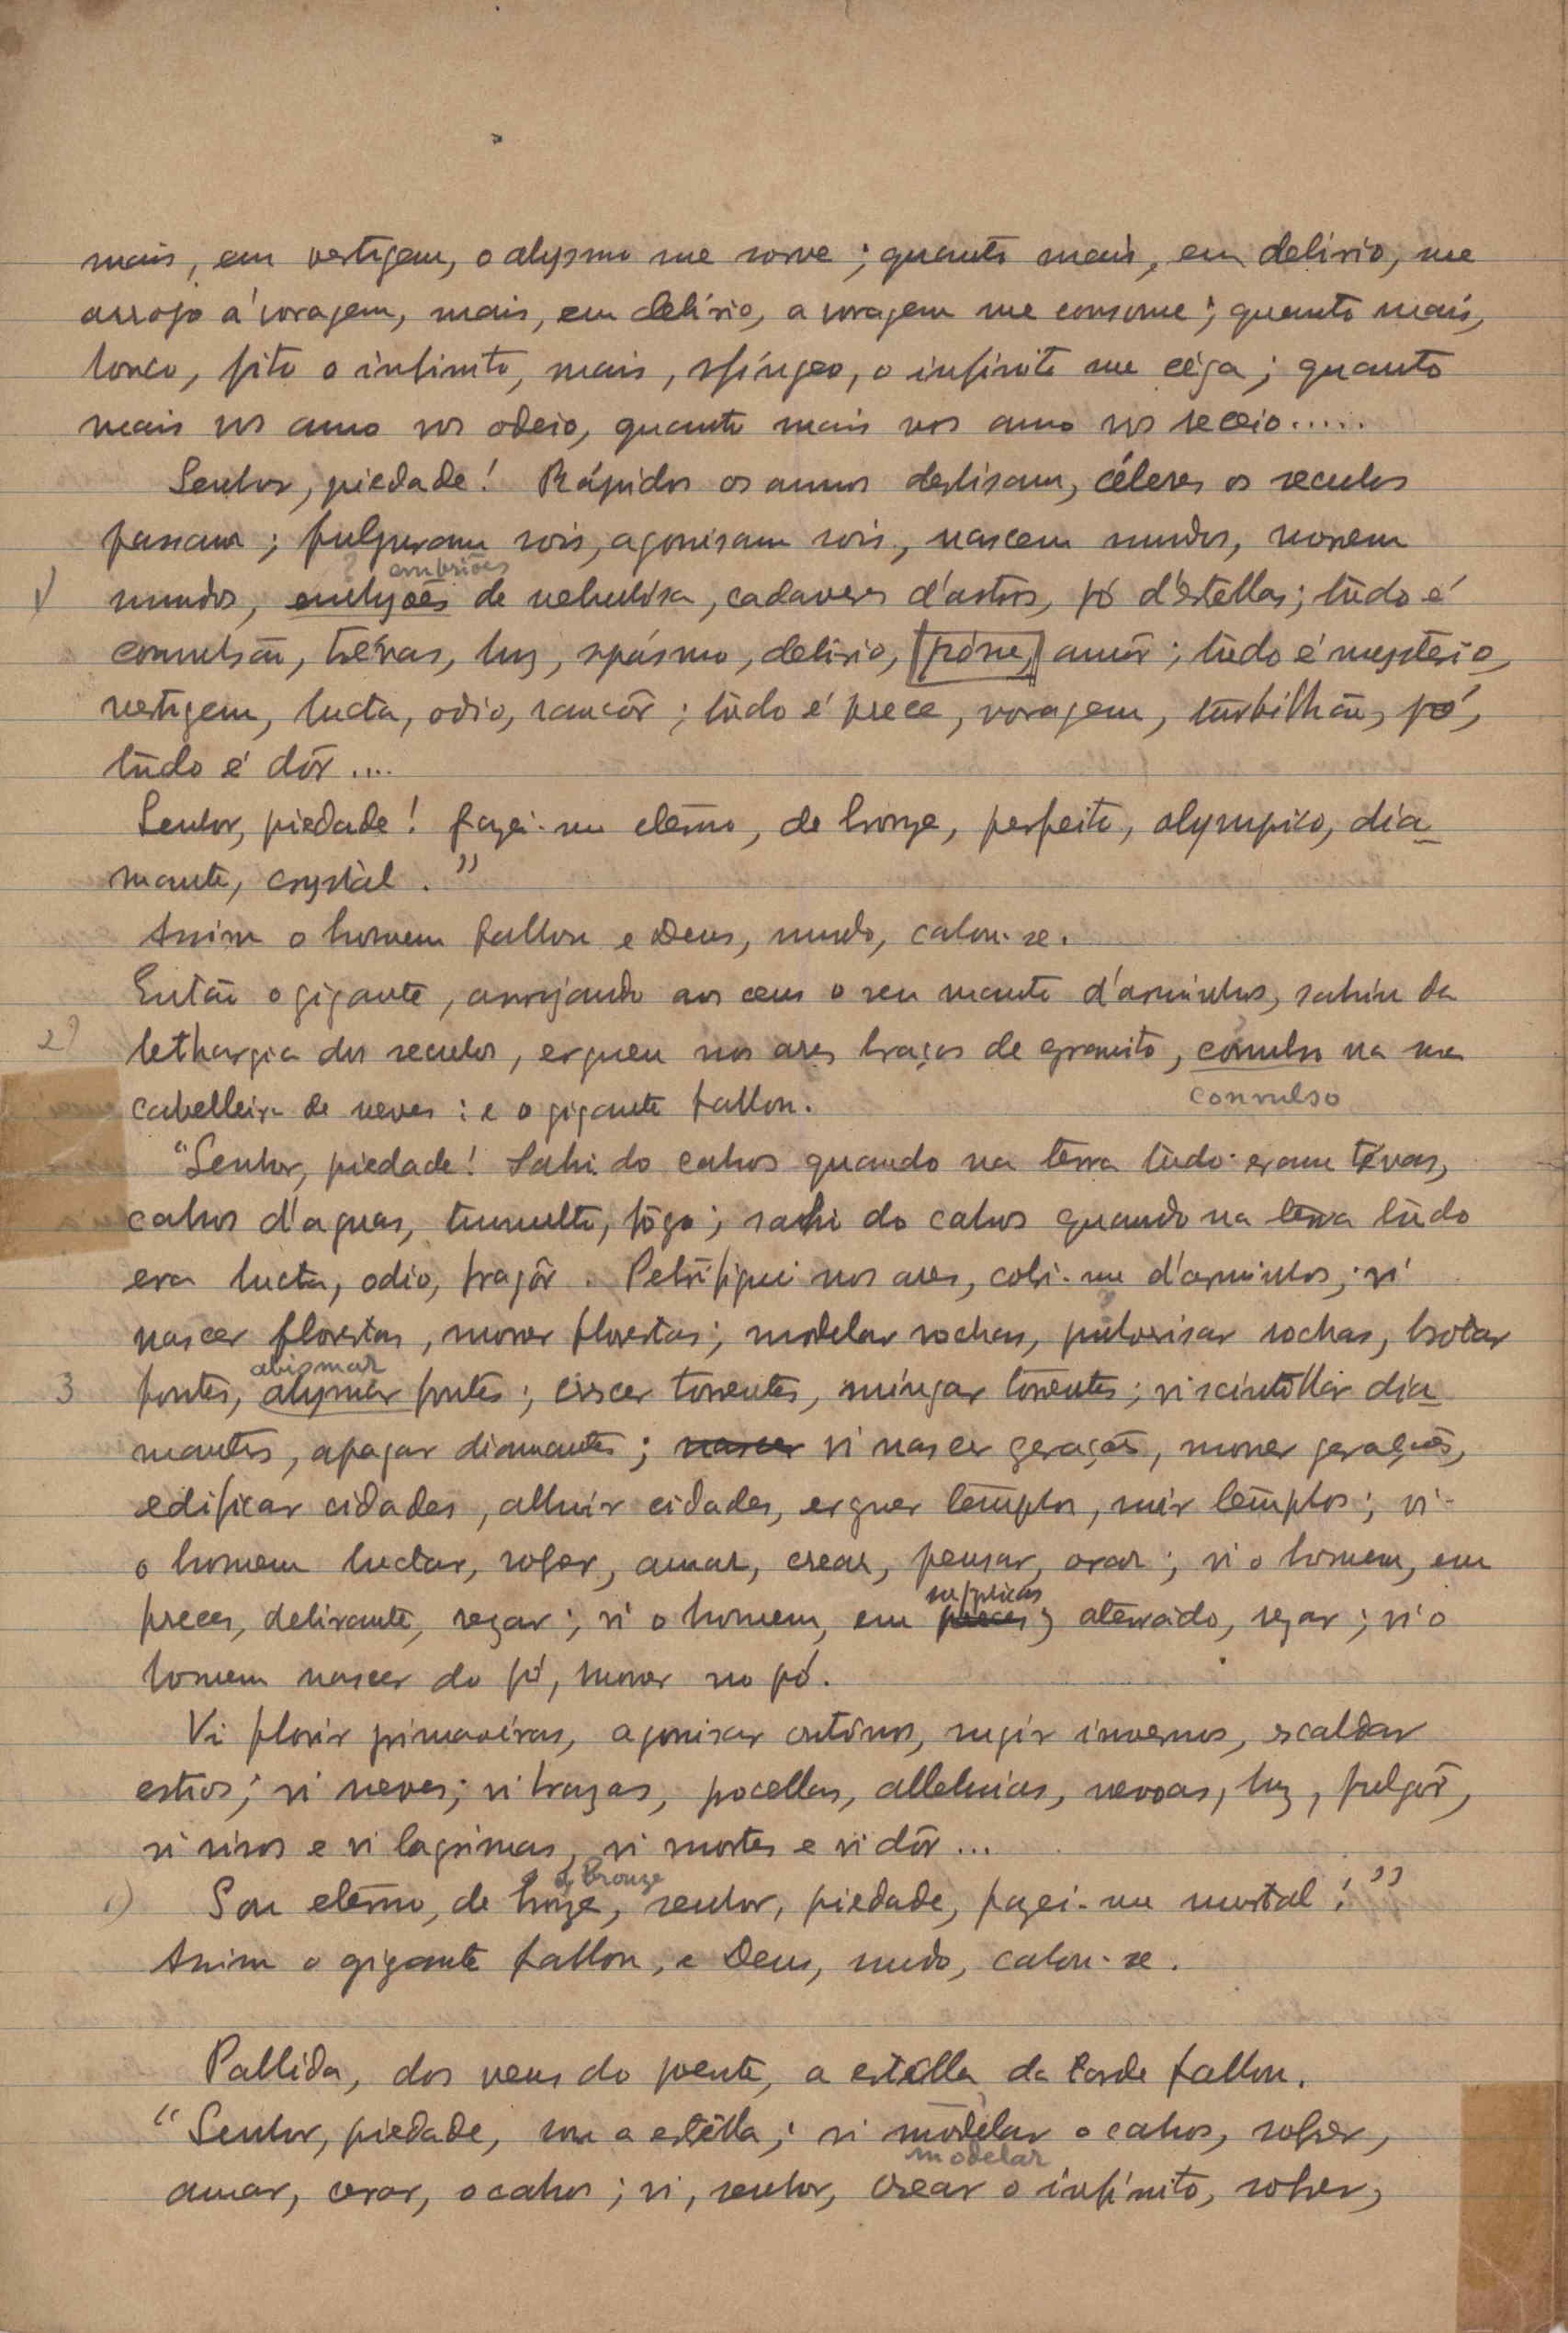 mais, em vertigem, o abysmo me sorve; quanto mais, em delirio, me
arrojo á voragem, mais, em delirio, a voragem me consome; quanto mais,
louco, fito o infinito, mais, sfingeo, o infinito me céga; quanto
mais vos amo vos odeio, quanto mais vos amo vos receio.....
Senhor, piedade! Rápidos os annos deslisam, céleres os seculos
passam; fulguram sois, agonisam sois, nascem mundos, morrem
? embriões
1) mundos, embryões de nebulósa, cadaveres d'astros, pó d'estellas; tudo é
convulsão, trévas, luz, spásmo, delirio, amôr; tudo é mysterio,
vertigem, lucta, odio, rancôr; tudo é prece, voragem, turbilhão, pó,
tudo é dôr....
Senhor, piedade! fazei-me eterno, de bronze, perfeito, olympico, dia-
mante, crystal."
Assim o homem fallou e Deus, mudo, calou-se.
Então o gigante, arrojando aos ceus o seu manto d'arminhos, sahiu da
2) lethargia dos seculos, ergueu nos ares braços de granito, convulso na sua
convulso
cabelleira de neves: e o gigante fallou.
"Senhor, piedade! Sahi do cahos quando na terra tudo eram trévas,
cahos d'aguas, tumulto, fôgo; sahi do cahos quando na terra tudo
era lucta, odio, fragôr. Petrifiquei nos ares, cobri-me d'arminhos; vi
nascer florestas, morrer florestas; modelar rochas, pulverisar rochas, brotar
abismar
3 fontes, abysmar fontes; crescer torrentes, mingar torrentes; vi scintillar dia-
mantes, apagar diamantes; nascer vi nascer gerações, morrer gerações,
edificar cidades, alluir cidades, erguer templos, ruir templos; vi
o homem luctar, sofrer, amar, crear, pensar, orar; vi o homem, em
supplicas
preces, delirante, rezar; vi o homem, em preces, aterrado, rezar; vi o
homem nascer do pó, morrer no pó.
Vi florir primavéras, agonisar outônos, rugir invernos, escaldar
estios; vi neves; vi brazas, procellas, alleluias, nevoas, luz, fulgôr,
vi risos e vi lagrimas, vi mortes e vi dôr...
de bronze
Sou eterno, de bronze, senhor, piedade, fazei-me mortal!"
Assim o gigante fallou, e Deus, mudo, calou-se.
Pallida, dos veus do poente, a estella da tarde fallou.
"Senhor, piedade, sou a estella; vi modelar o cahos, sofrer,
modelar
amar, orar, o cahos; vi, senhor, crear o infinito, sofrer,